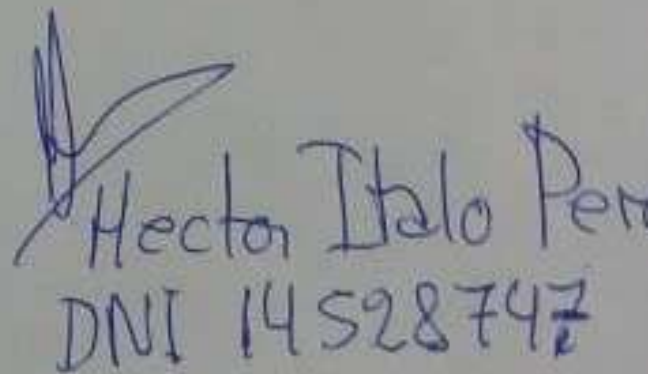 Hector Italo Per
DNI 14528747